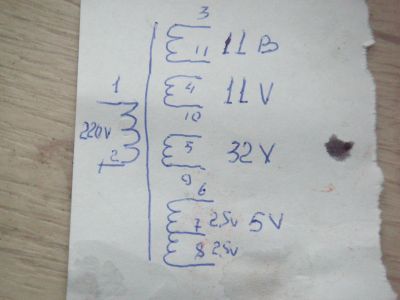 3
11 11 В
1
4 11 V
10
220V
2
5 32 V
9
6
7 2,5V 5V
8 2,5V